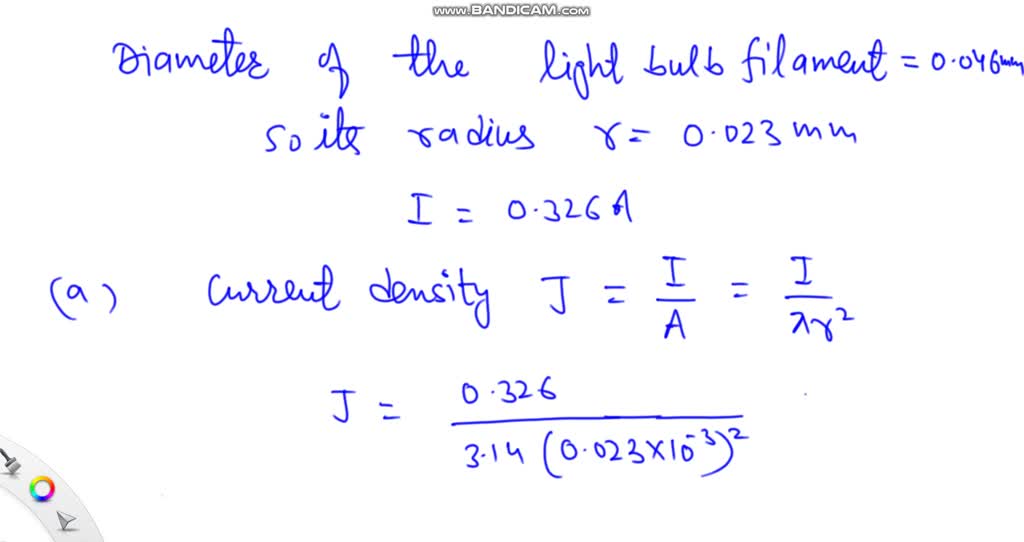 www.BANDICAM.com
Diameter of the light bulb filament = 0.046mm
so its radius r = 0.023 mm
I = 0.326 A
(a) Current density J = I/A = I/πr²
J = 0.326/3.14 (0.023×10⁻³)²